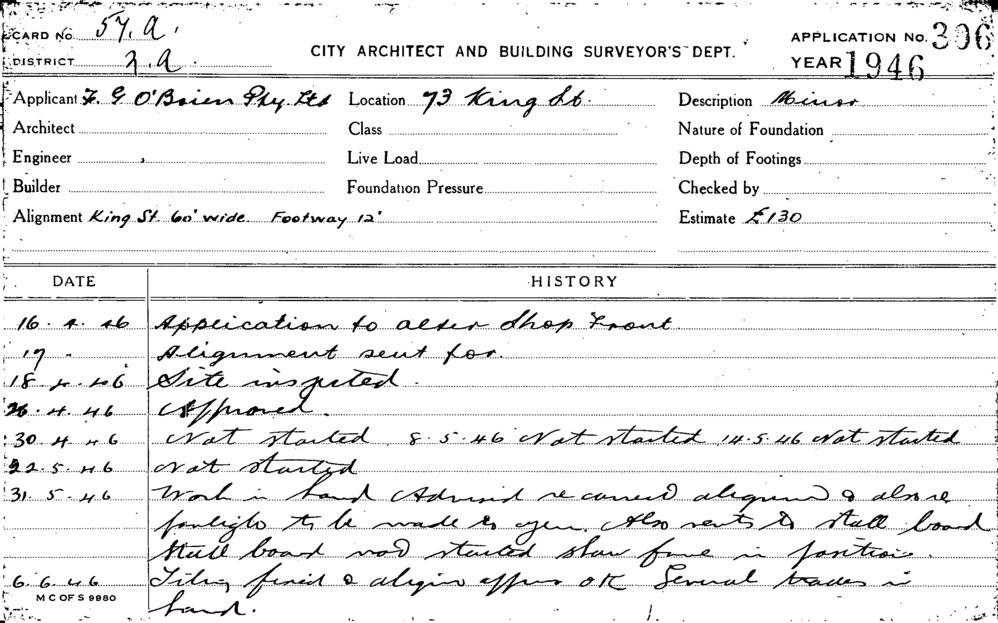 CARD No. 57.A.
DISTRICT 2.A.
CITY ARCHITECT AND BUILDING SURVEYOR'S DEPT.
APPLICATION No. 306
YEAR 1946
Applicant F. G O'Brien Pty. Ltd Location 73 King St. Description Minor
Architect Class Nature of Foundation
Engineer Live Load Depth of Footings
Builder Foundation Pressure Checked by
Alignment King St. 60' wide. Footway 12' Estimate £130
DATE HISTORY
16.4.46 Application to alter Shop Front
17 " Alignment sent for.
18.4.46 Site inspected.
26.4.46 Approved.
30.4.46 Not started 8.5.46 Not started 14.5.46 Not started
22.5.46 Not started
31.5.46 Work in hand Advised re correct alignm & also re
fanlight to be made to open. Also vents to stall board
Stall board started in position.
6.6.46 Tiling & align OK Several trades in
M C OF S 9980
hand.